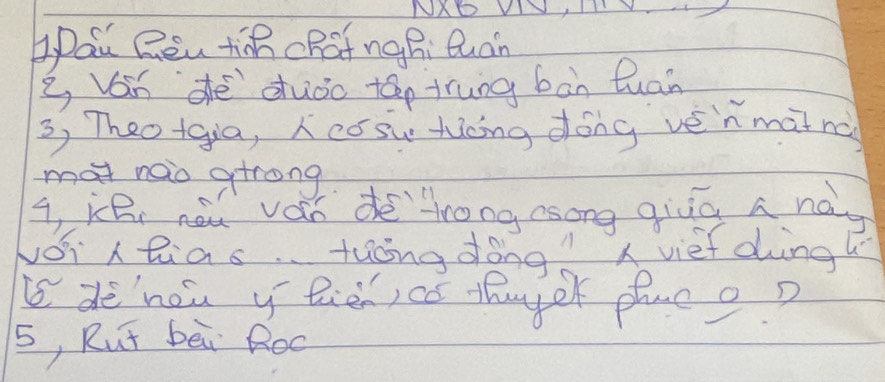 NXB VN, HN
1, Dấu hiệu tính chất nghị luận
2, Vấn đề được tập trung bàn luận
3, Theo tgiả, λ có sự tương đồng về ñ mặt nào
mặt nào q trong
4, khi nêu vấn đề "trong csong giữa λ này
với λ kia s ... tương đồng" λ viết dùng lí
lẽ để nêu ý kiến, có thuyết phục o ?
5, Rút bài học